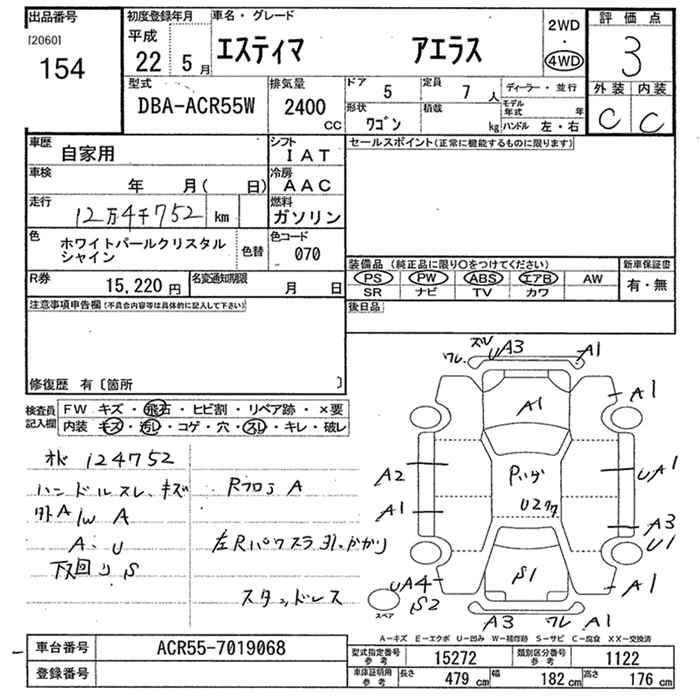 出品番号
[2060]
154
初度登録年月
平成
22年 5月
車名・グレード
エスティマ アエラス
2WD
・
4WD
評価点
3
型式
DBA-ACR55W
排気量
2400
CC
ドア
5
定員
7 人
形状
ワゴン
積載
kg
ディーラー・並行
モデル年式 年
ハンドル 左・右
外装 内装
C C
車歴
自家用
シフト
IAT
車検
年 月( 日)
冷房
AAC
走行
12万4千752 km
燃料
ガソリン
色
ホワイトパールクリスタル
シャイン
色替
色コード
070
R券
15,220 円
名変通知期限
月 日
セールスポイント(正常に機能するものに限ります)
装備品 (純正品に限り○をつけてください)
新車保証書
PS PW ABS エアB AW
SR ナビ TV カワ
有・無
後日品
注意事項申告欄(不具合内容等は具体的に記入して下さい)
修復歴 有〔箇所 〕
検査員
記入欄
FW キズ・飛石・ヒビ割・リペア跡・×要
内装 キズ・汚レ・コゲ・穴・スレ・キレ・破レ
124752
ハンドルスレ、キズ
外A/W A
A、U
下回りS
RフロアA
左Rパワスラ引っかかり
スタッドレス
スレ
ワレ UA3 A1
A1 A1
A2
UA1
A1
U2
A3
U1
S1
UA4
S2
A1
スペア
A3 ワレ A1
A―キズ E―エクボ U―凹み W―補修跡 S―サビ C―腐食 XX―交換済
車台番号 ACR55-7019068
登録番号
型式指定番号
参考
15272
類別区分番号
参考
1122
車庫証明用
参考
長さ 479 cm 幅 182 cm 高さ 176 cm